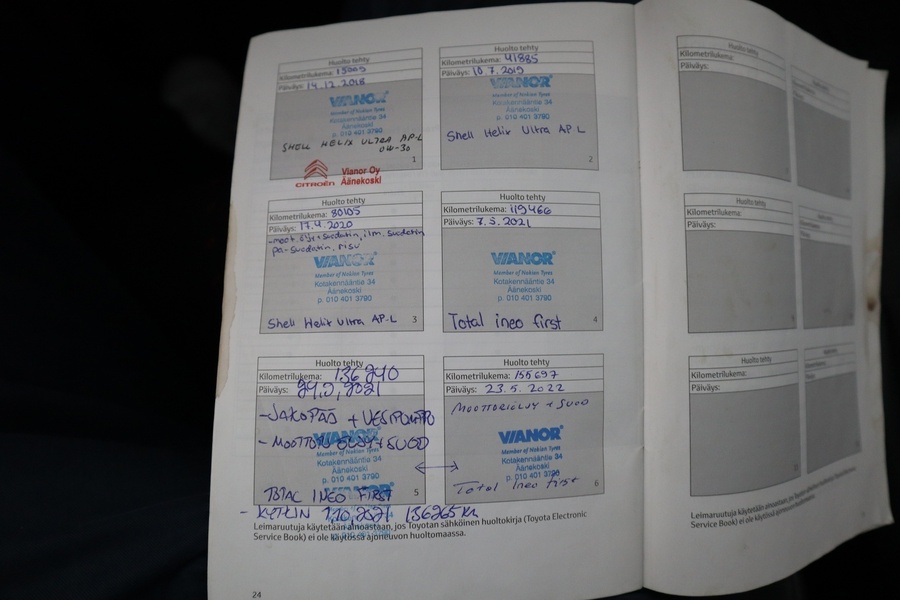 Huolto tehty
Kilometrilukema: 15005
Päiväys: 14.12.2018
VIANOR
Member of Nokian Tyres
Kotakennääntie 34
Äänekoski
p. 010 401 3790
SHELL HELIX ULTRA AP-L
0W-30
1
CITROËN
Vianor Oy
Äänekoski
Huolto tehty
Kilometrilukema: 41885
Päiväys: 10.7.2019
VIANOR
Member of Nokian Tyres
Kotakennääntie 34
Äänekoski
p. 010 401 3790
Shell Helix Ultra AP L
2
Huolto tehty
Kilometrilukema: 80105
Päiväys: 17.4.2020
-moot. öljy+suodatin, ilm. suodatin
pa-suodatin,
VIANOR
Member of Nokian Tyres
Kotakennääntie 34
Äänekoski
p. 010 401 3790
Shell Helix Ultra AP-L
3
Huolto tehty
Kilometrilukema: 119466
Päiväys: 7.5.2021
VIANOR
Member of Nokian Tyres
Kotakennääntie 34
Äänekoski
p. 010 401 3790
Total ineo first
4
Huolto tehty
Kilometrilukema: 136240
Päiväys: 2021
-JAKOPÄÄ + VESIPUMPPU
-MOOTTORI ÖLJY+SUOD
VIANOR
Member of Nokian Tyres
Kotakennääntie 34
Äänekoski
p. 010 401 3790
TOTAL INEO FIRST
5
- KYTKIN 1.10.2021 136265 Km
Huolto tehty
Kilometrilukema: 155697
Päiväys: 23.5.2022
MOOTTORIÖLJY + SUOD
VIANOR
Member of Nokian Tyres
Kotakennääntie 34
Äänekoski
p. 010 401 3790
Total Ineo first
6
Leimaruutuja käytetään ainoastaan, jos Toyotan sähköinen huoltokirja (Toyota Electronic
Service Book) ei ole käytössä ajoneuvon huoltomaassa.
24
Huolto tehty
Kilometrilukema:
Päiväys:
Huolto tehty
Kilometrilukema:
Päiväys:
Huolto tehty
Kilometrilukema:
Päiväys:
Leimaruutuja käytetään ainoastaan, jos Toyotan
Service Book) ei ole käytössä ajoneuvon